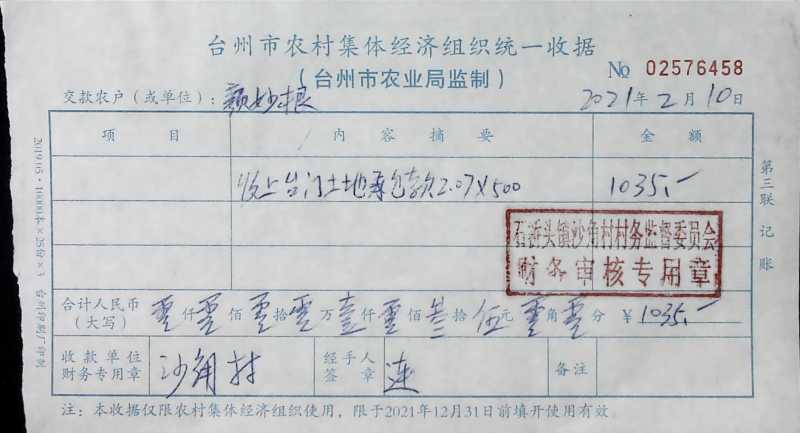 台州市农村集体经济组织统一收据
（台州市农业局监制）
No 02576458
交款农户（或单位）：颜妙根
2021年2月10日
项目 内容摘要 金额
收上台门土地承包款2.07×500 1035.-
石浉头镇沙角村村务监督委员会
财务审核专用章
合计人民币（大写） 零仟零佰零拾零万壹仟零佰叁拾伍元零角零分 ¥1035.-
收款单位财务专用章 沙角村 经手人签章 连 备注
注：本收据仅限农村集体经济组织使用，限于2021年12月31日前填开使用有效。
第三联 记账
2019.05·10000本×25份×3 台州